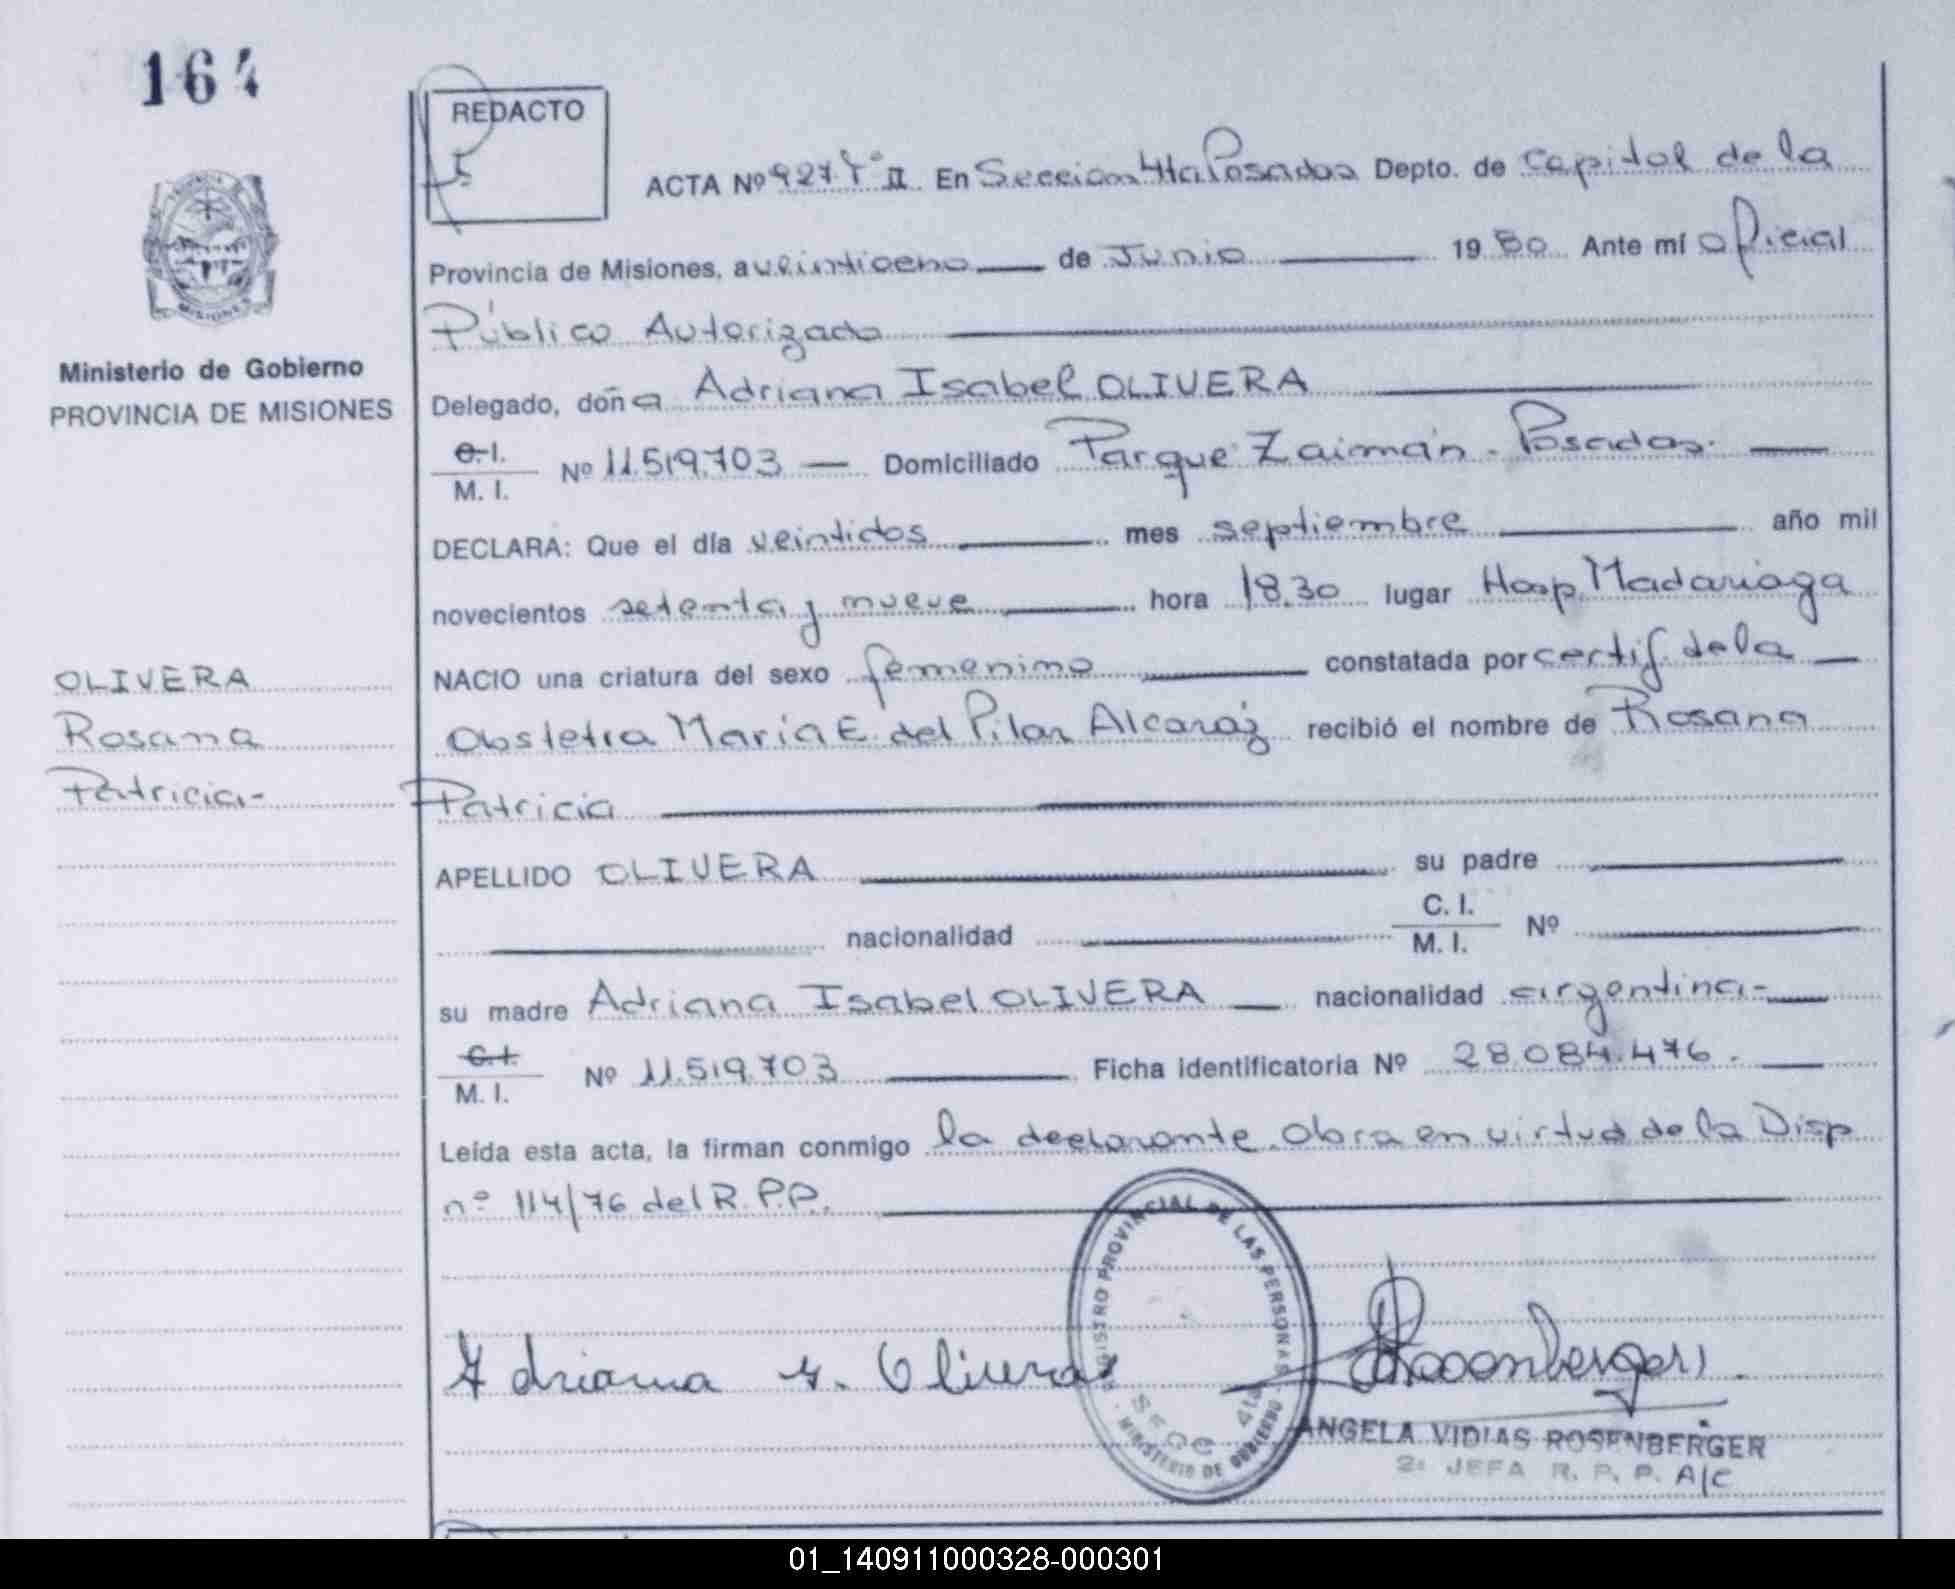 164
REDACTO
ACTA Nº 927 Tº II En Sección 4ta Posadas Depto. de Capital de la
Provincia de Misiones, a veintiocho de Junio 1980 Ante mí oficial
Público Autorizado
Ministerio de Gobierno
PROVINCIA DE MISIONES
Delegado, doña Adriana Isabel OLIVERA
C.I.
M. I. Nº 11.519.703 Domiciliado Parque Zaimán - Posadas.
DECLARA: Que el día veintidos mes septiembre año mil
novecientos setenta y nueve hora 18.30 lugar Hosp Madariaga
OLIVERA
Rosana
Patricia-
NACIO una criatura del sexo femenino constatada por certif. de la
Obstetra María E. del Pilar Alcaráz recibió el nombre de Rosana
Patricia
APELLIDO OLIVERA su padre
nacionalidad C. I.
M. I. Nº
su madre Adriana Isabel OLIVERA nacionalidad argentina-
C.I.
M. I. Nº 11.519.703 Ficha identificatoria Nº 28.084.476.
Leída esta acta, la firman conmigo la declarante. Obra en virtud de la Disp
nº 114/76 del R.P.P.
REGISTRO PROVINCIAL DE LAS PERSONAS
SECC 4ta
MINISTERIO DE GOBIERNO
Adriana I. Olivera
Rosenberger
ANGELA VIDIAS ROSENBERGER
2ª JEFA R. P. P. A/C
01_140911000328-000301